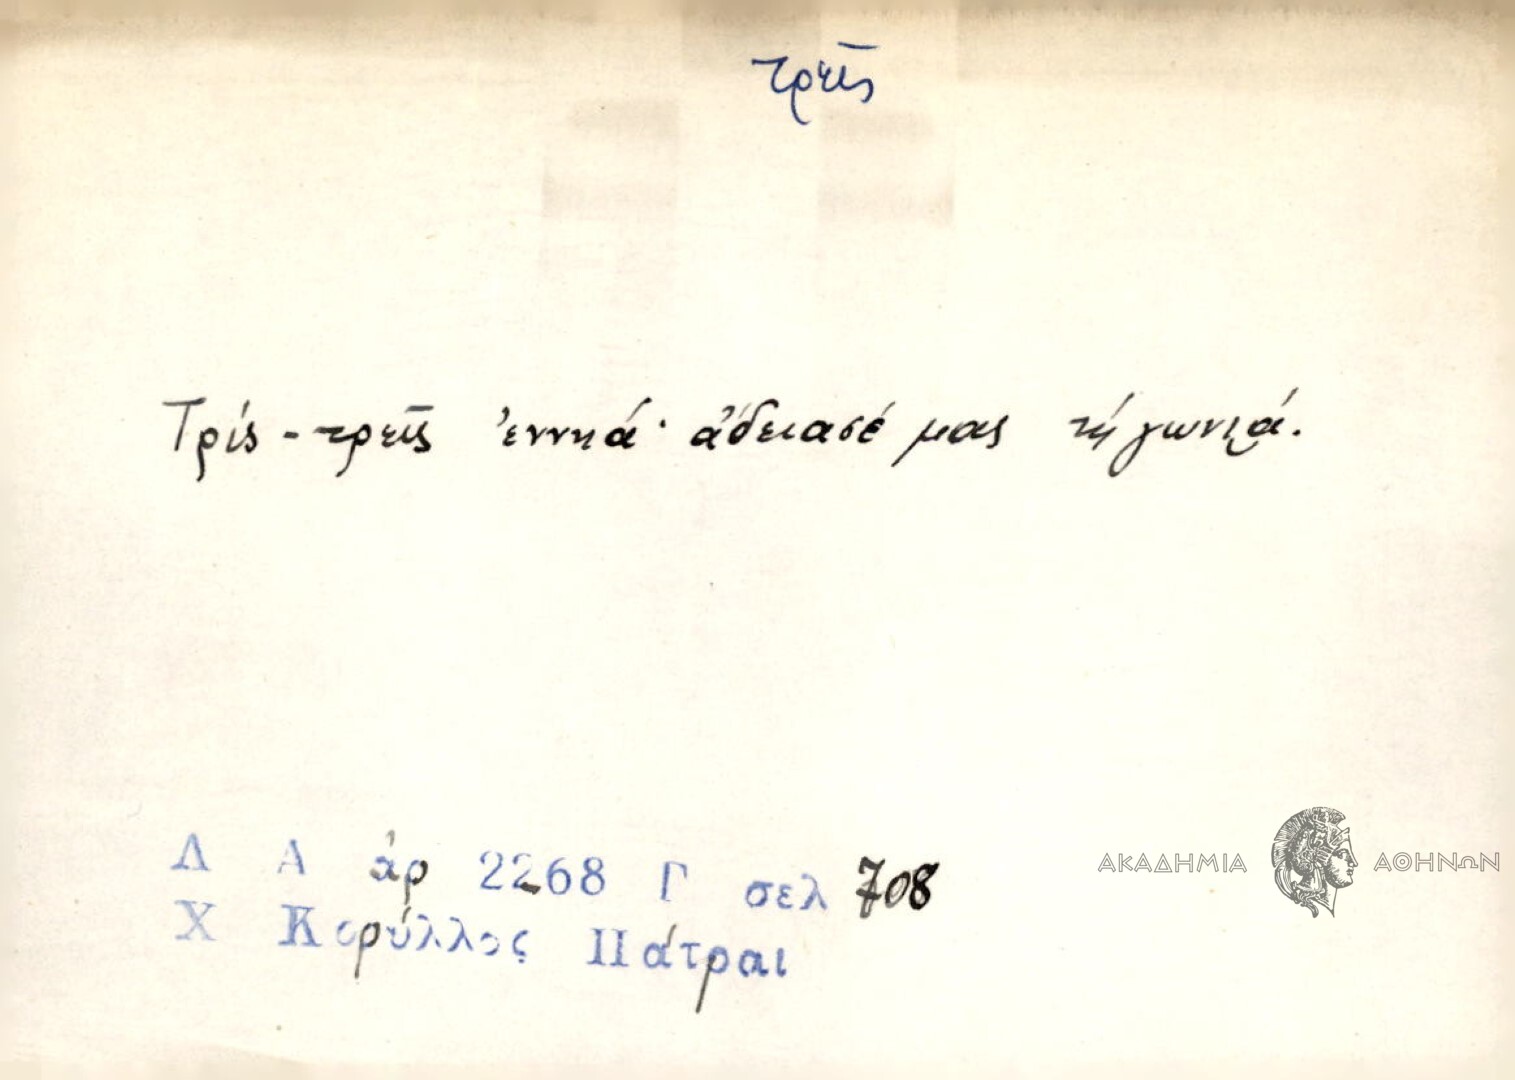 τρεῖς
Τρίς - τρεῖς ἐννηά· ἄδειασέ μας τή γωνιά.
Λ Α ἀρ 2268 Γ σελ 708
Χ Κορύλλος Πάτραι
ΑΚΑΔΗΜΙΑ ΑΘΗΝΩΝ